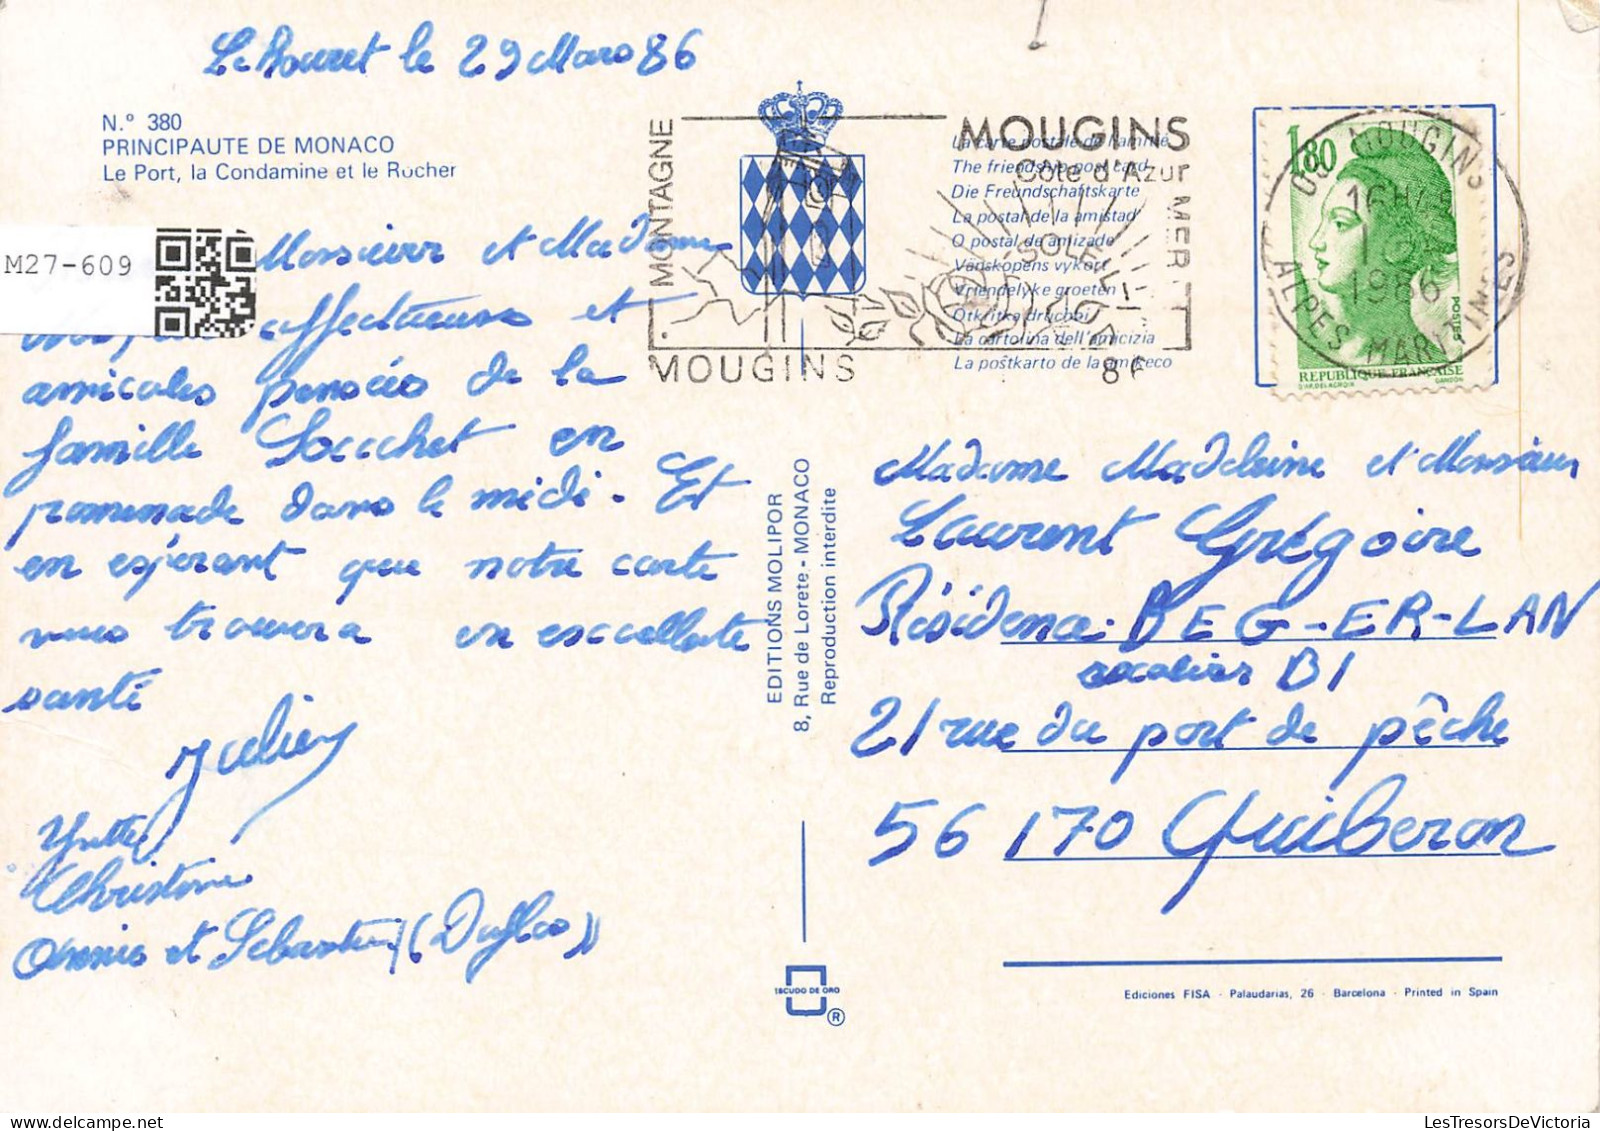 Le Rouret le 29 Mars 86
N.° 380
PRINCIPAUTE DE MONACO
Le Port, la Condamine et le Rocher
M27-609
Monsieur et Madame
affectueuses et
amicales pensées de la
famille en
promenade dans le midi. Et
en espérant que notre carte
vous trouvera en excellente
santé
Julien
Yvette
Christine
Annie et Sébastien
EDITIONS MOLIPOR
8, Rue de Lorete - MONACO
Reproduction interdite
MONTAGNE
MOUGINS
Côte d'Azur
MER
SOLEIL
MOUGINS
86
La carte postale de l'amitié
The friendship post card
Die Freundschaftskarte
La postal de la amistad
O postal de amizade
Vänskopens vykort
Vriendelyke groeten
Otkritka druchbi
La cartolina dell'amicizia
La poŝtkarto de la amikeco
1,80
POSTES
REPUBLIQUE FRANÇAISE
D'AP. DELACROIX GANDON
MOUGINS
16H45
1986
ALPES MARITIMES
Madame Madeleine et Monsieur
Laurent Grégoire
Résidence BEG-ER-LAN
escalier B1
21 rue du port de pêche
56 170 Quiberon
ESCUDO DE ORO
®
Ediciones FISA - Palaudarias, 26 - Barcelona - Printed in Spain
LesTresorsDeVictoria.com